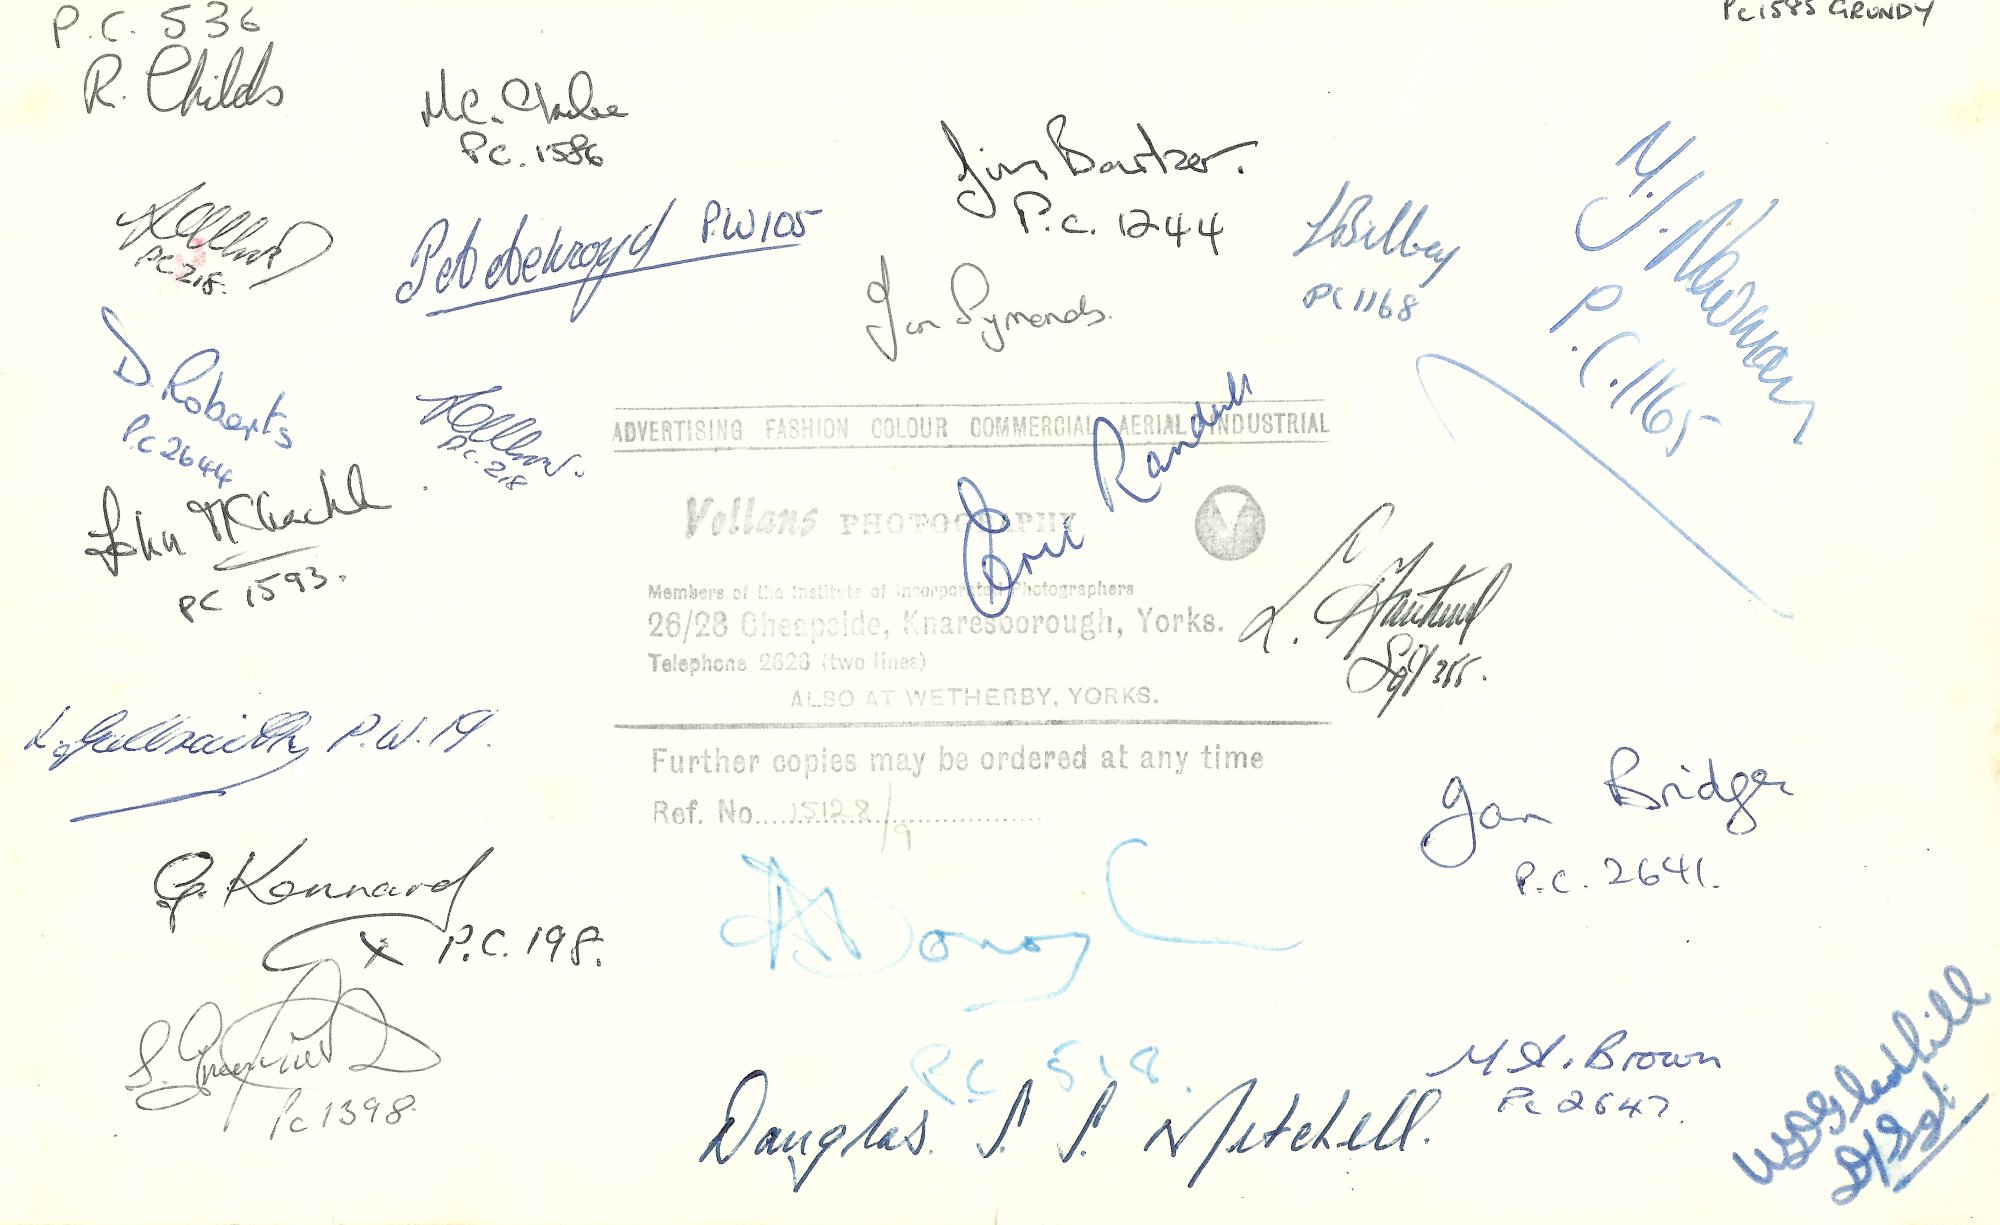 P.C. 536
R. Childs
PC 1585 GRUNDY
M.C.
PC. 1586
Jim Bartzer.
P.C. 1244
PC 218.
Pat Ackroyd PW105
L Bilbey
PC 1168
M.J. Newman
P.C. 1165
Jan Symonds.
D. Roberts
P.C 2644
P.C. 218
John McLachlan
PC 1593.
ADVERTISING FASHION COLOUR COMMERCIAL AERIAL INDUSTRIAL
Eric Randall
Vollans PHOTOGRAPHY
Members of the Institute of Incorporated Photographers
26/28 Cheapside, Knaresborough, Yorks.
Telephone 2626 (two lines)
ALSO AT WETHERBY, YORKS.
L.
Sgt 355.
L. Galbraith P.W. 19.
Further copies may be ordered at any time
Ref. No. 15128/9
Jan Bridge
P.C. 2641.
G. Kennard
X P.C. 198.
P.C 518.
S.
Pc 1398
Douglas. S. S. Mitchell.
M A. Brown
Pc 2647.
W D Gledhill
D/Sgt.